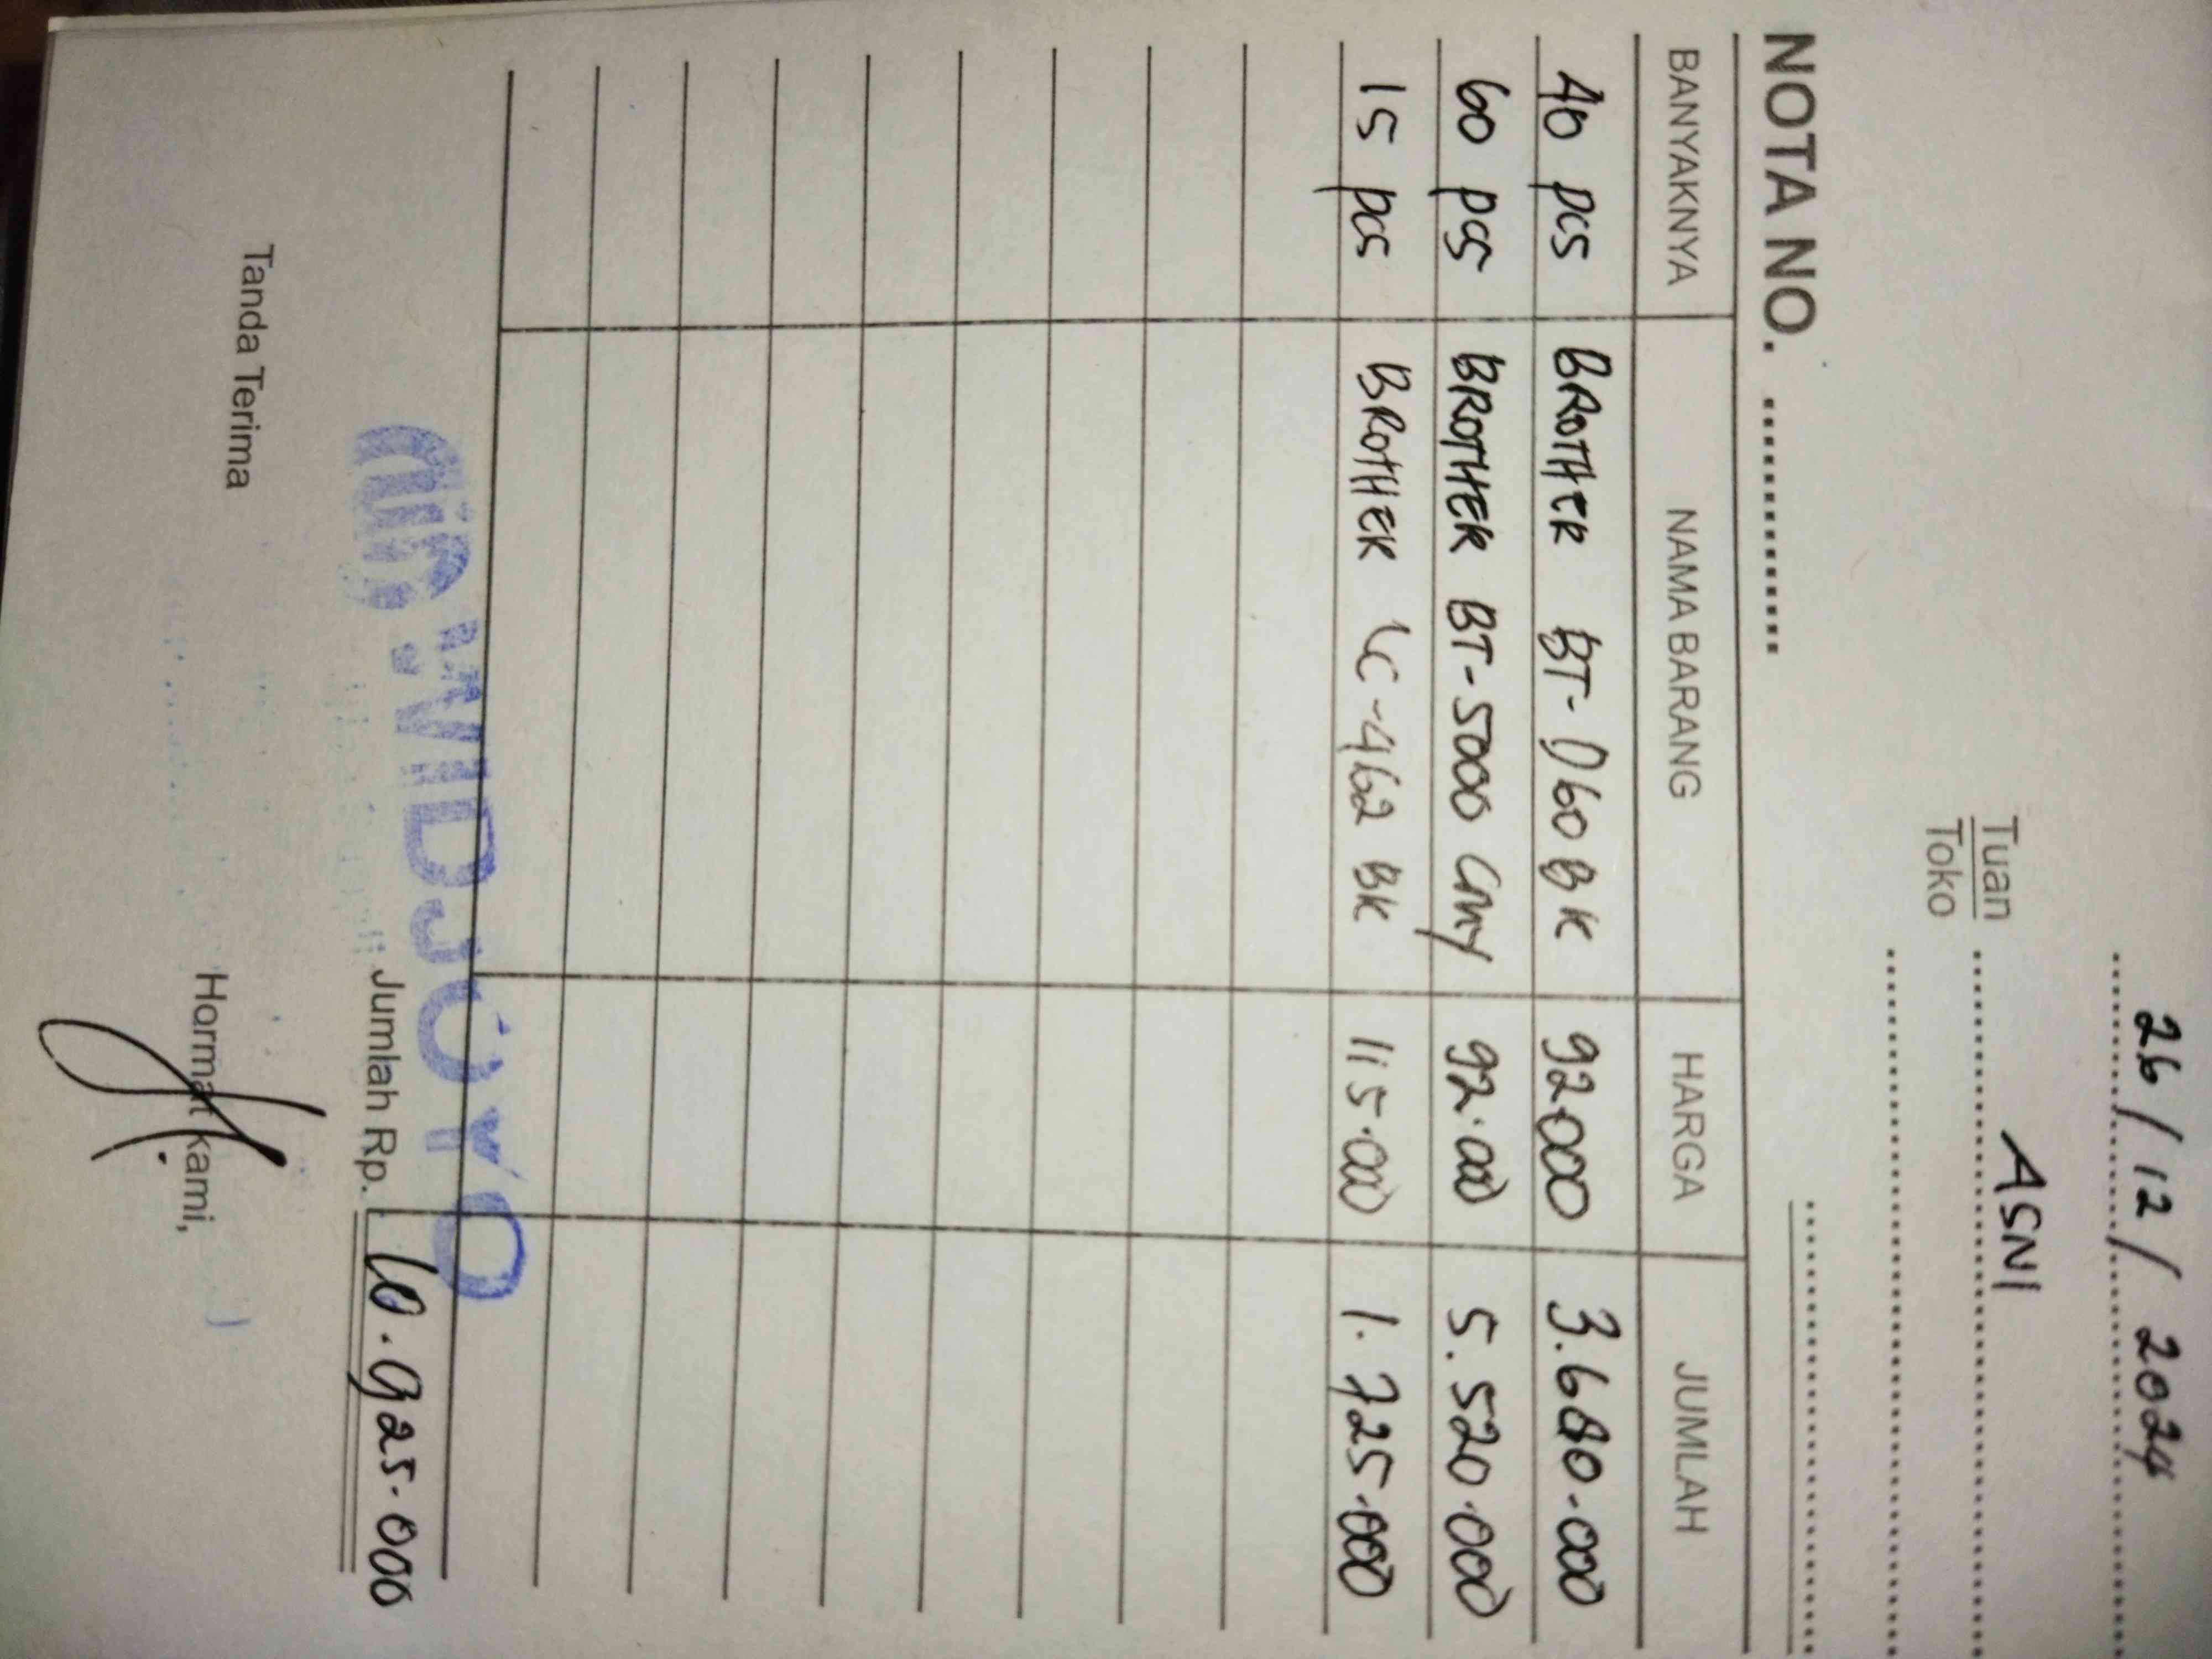 26/12/2024
Tuan ASNI
Toko
NOTA NO.
BANYAKNYA NAMA BARANG HARGA JUMLAH
40 pcs BROTHER BT-D60BK 92000 3.680.000
60 pcs BROTHER BT-5000 CMY 92.000 5.520.000
15 pcs BROTHER LC-462 BK 115.000 1.725.000
WIDJOYO
Jumlah Rp. 10.925.000
Tanda Terima Hormat kami,